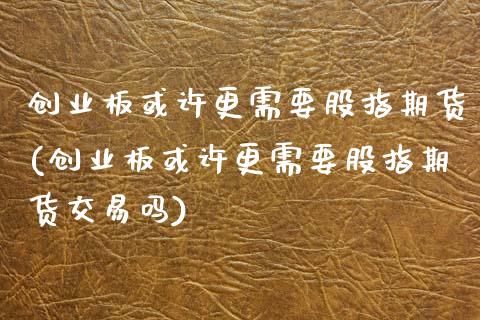 创业板或许更需要股指期货
(创业板或许更需要股指期
货交易吗)